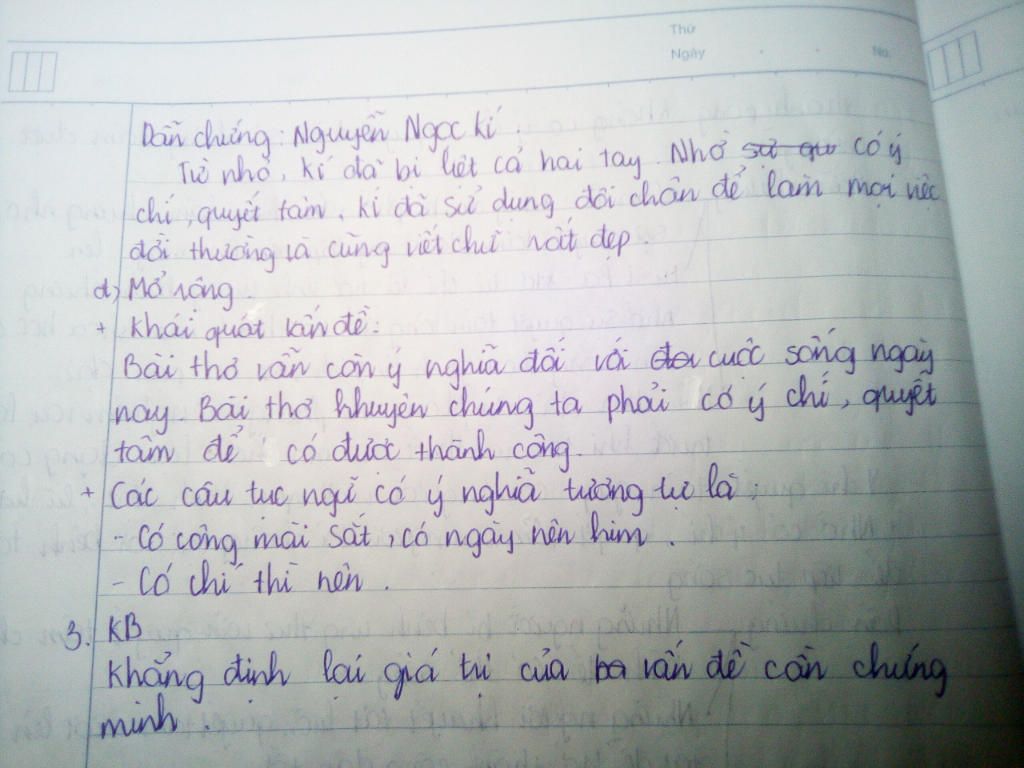 Thứ
Ngày No.
Dẫn chứng: Nguyễn Ngọc Kí.
Từ nhỏ, kí đã bị liệt cả hai tay. Nhờ có ý
chí, quyết tâm, kí đã sử dụng đôi chân để làm mọi việc
đời thường và cũng viết chữ rất đẹp.
d) Mở rộng.
+ Khái quát vấn đề:
Bài thơ vẫn còn ý nghĩa đối với cuộc sống ngày
nay. Bài thơ khuyên chúng ta phải có ý chí, quyết
tâm để có được thành công.
+ Các câu tục ngữ có ý nghĩa tương tự là:
- Có công mài sắt, có ngày nên kim.
- Có chí thì nên.
3. KB
Khẳng định lại giá trị của vấn đề cần chứng
minh